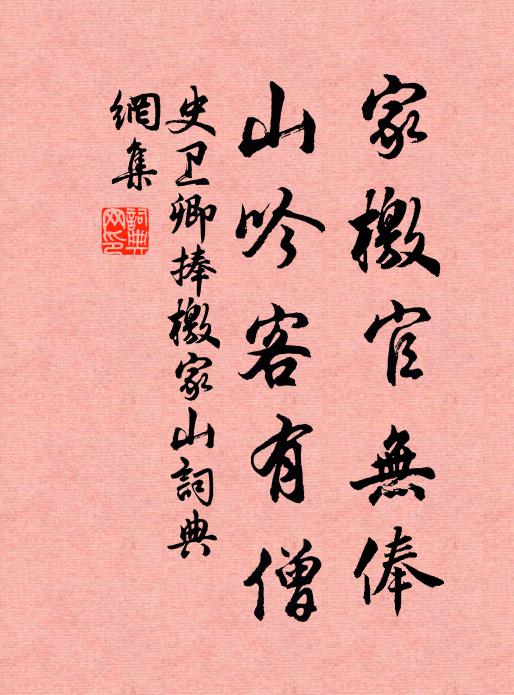 家檄官無俸
山吟客有僧
史卫卿捧檄家山詞典
網集
詞典
网印